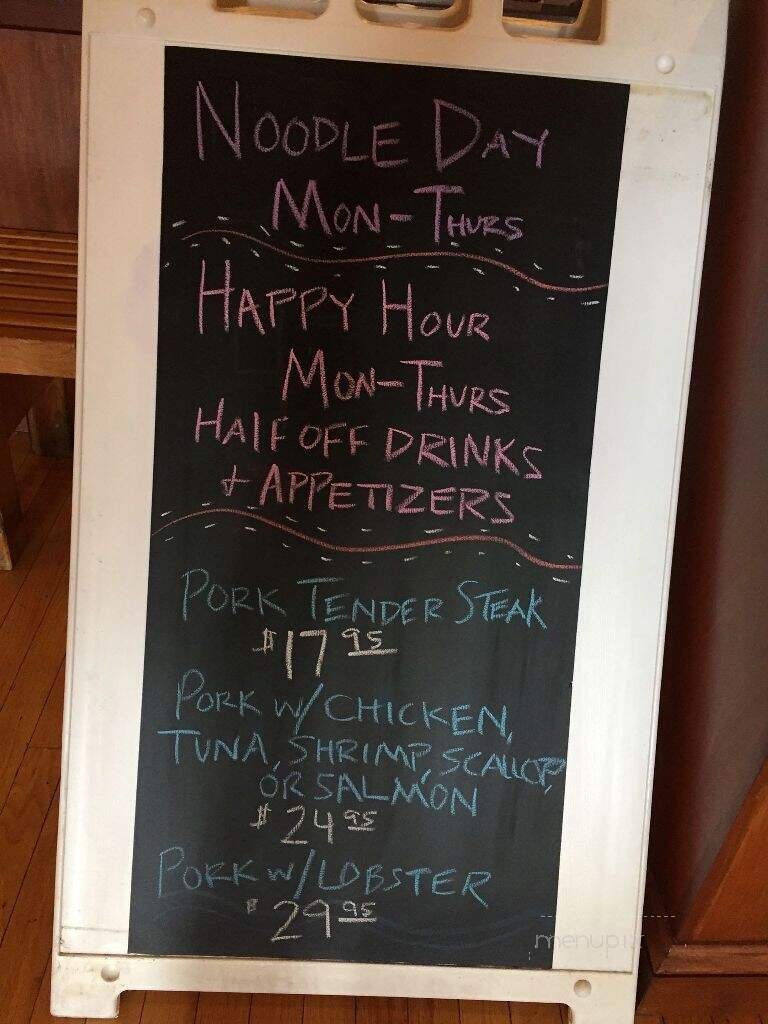 NOODLE DAY
MON-THURS
HAPPY HOUR
MON-THURS
HALF OFF DRINKS
+ APPETIZERS
PORK TENDER STEAK
$17 95
PORK W/ CHICKEN,
TUNA, SHRIMP, SCALLOP,
OR SALMON
$24 95
PORK W/ LOBSTER
$29 95
menupix